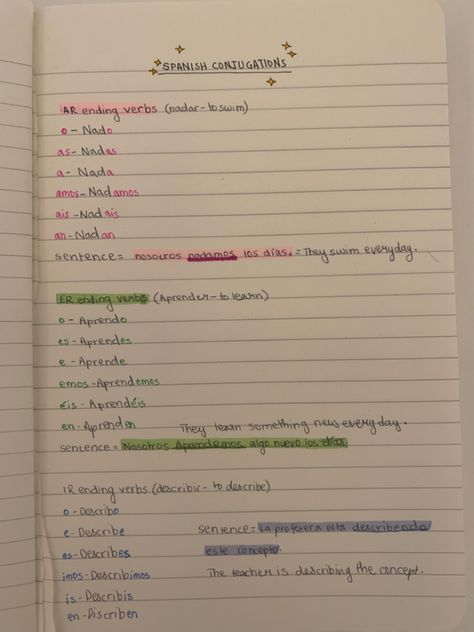 SPANISH CONJUGATIONS
AR ending verbs (nadar-to swim)
o - Nado
as- Nadas
a - Nada
amos- Nadamos
ais -Nadais
an- Nadan
sentence= nosotros nadamos los días. = They swim everyday.
ER ending verbs (Aprender-to learn)
o - Aprendo
es - Aprendes
e - Aprende
emos -Aprendemos
éis - Aprendéis
en- Aprenden
They learn something new everyday.
sentence= Nosotros Aprendemos algo nuevo los días.
IR ending verbs (describir- to describe)
o - Describo
e- Describe
es- Describes
imos- Describimos
is - Describis
en - Discriben
sentence= La profesera esta describenda
este concepto.
The teacher is describing the concept.